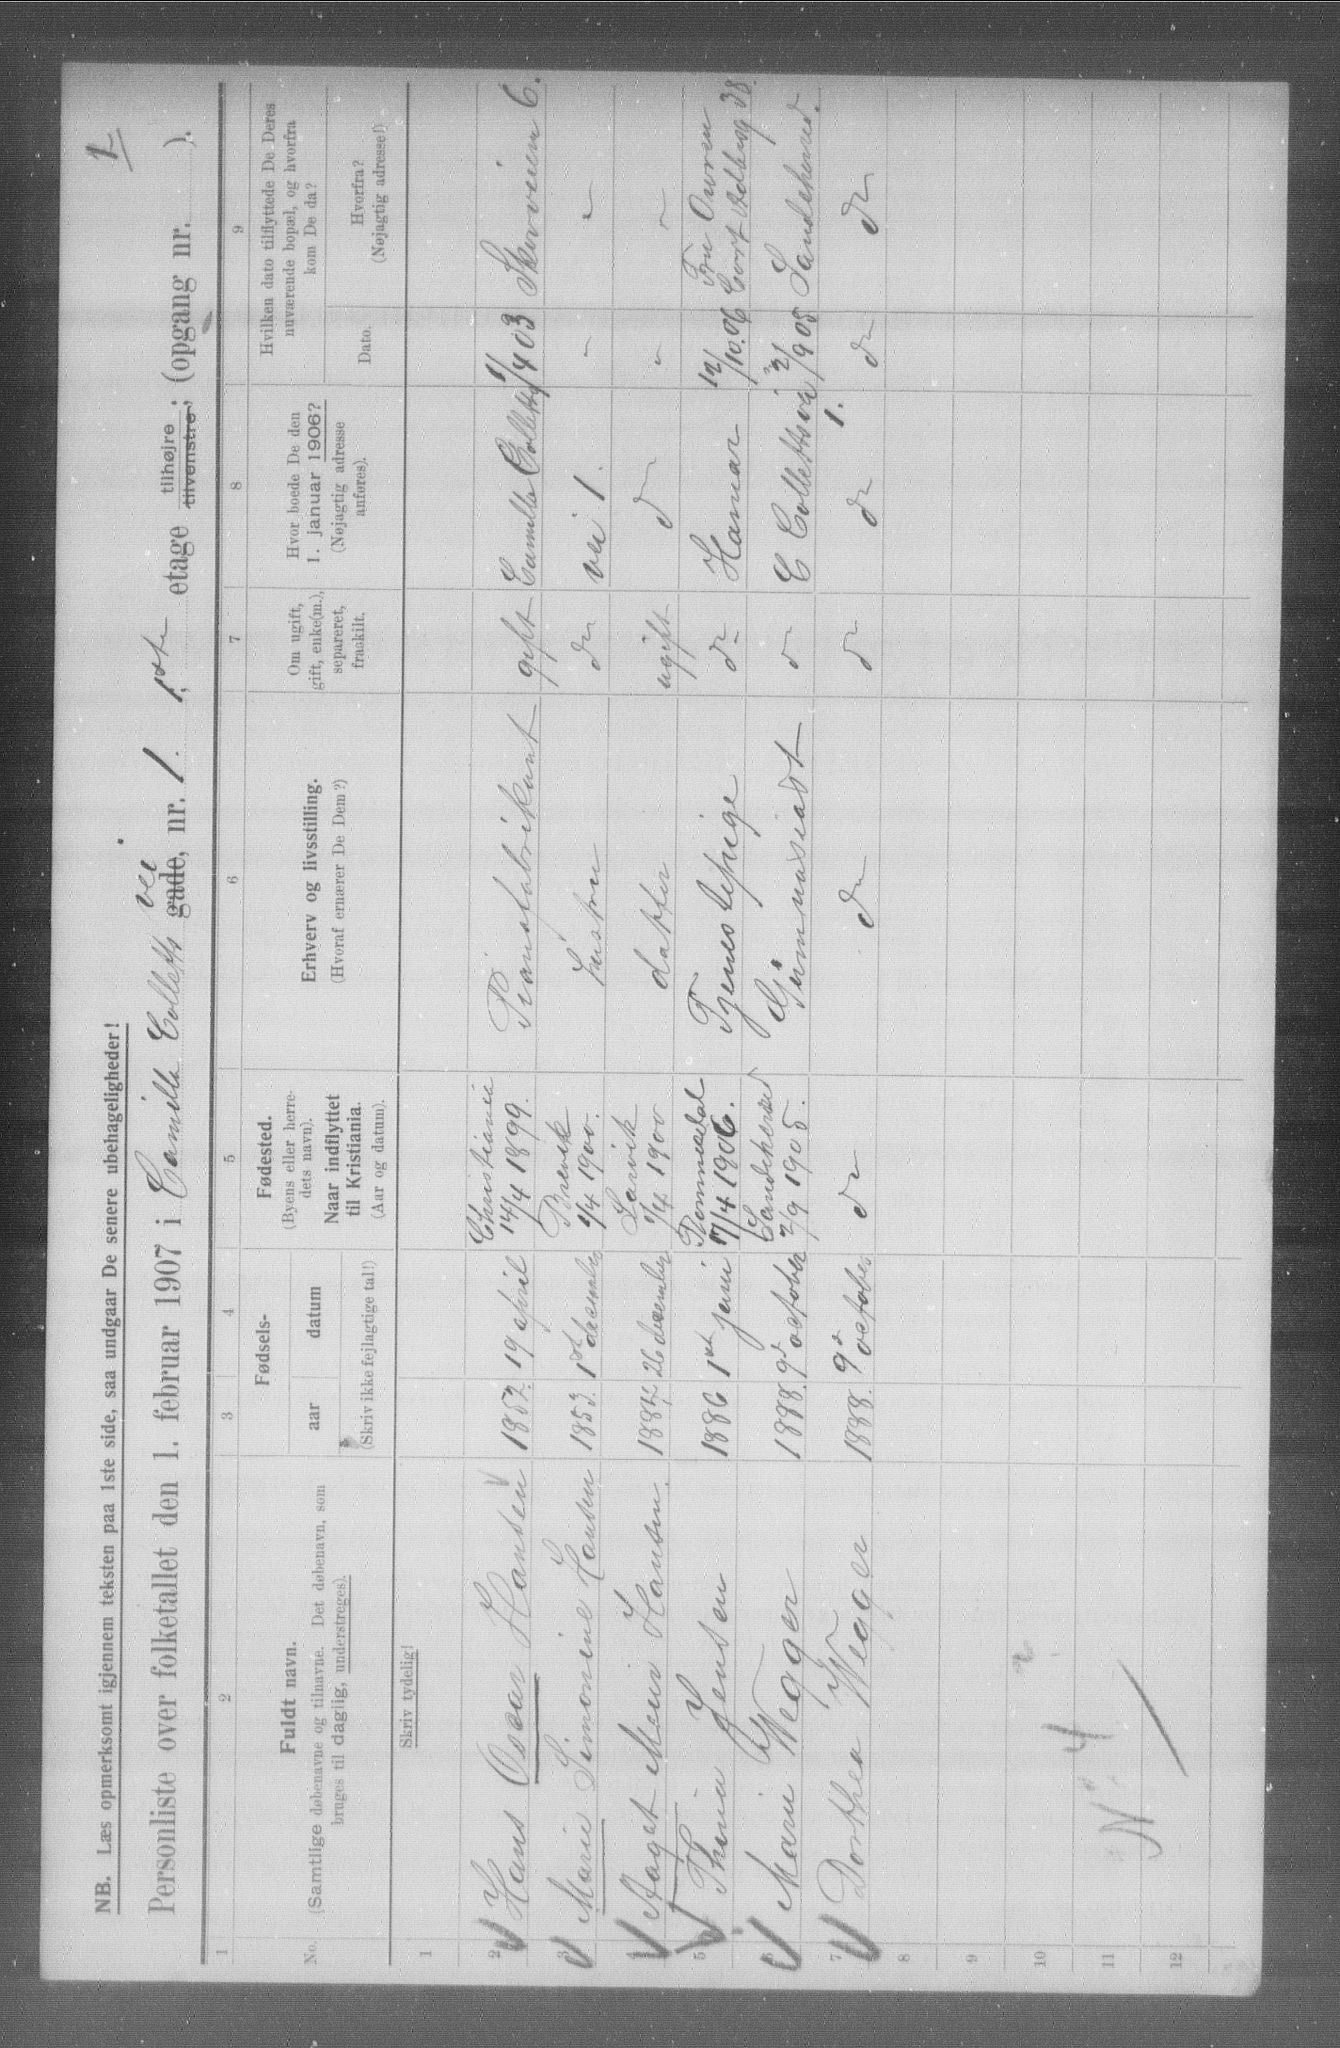 1
NB. Læs opmerksomt igjennem teksten paa 1ste side, saa undgaar De senere ubehageligheder!
Personliste over folketallet den 1. februar 1907 i Camilla Colletts vei gade, nr. 1. 1ste etage tilhøjre tilvenstre; (opgang nr. ).
1 2 3 4 5 6 7 8 9
No.
Fuldt navn.
(Samtlige døbenavne og tilnavne. Det døbenavn, som
bruges til daglig, understreges).
Fødsels-
aar datum
(Skriv ikke fejlagtige tal!)
Fødested.
(Byens eller herre-
dets navn).
Naar indflyttet
til Kristiania.
(Aar og datum).
Erhverv og livsstilling.
(Hvoraf ernærer De Dem?)
Om ugift,
gift, enke(m.),
separeret,
fraskilt.
Hvor boede De den
1. januar 1906?
(Nøjagtig adresse
anføres).
Hvilken dato tilflyttede De Deres
nuværende bopæl, og hvorfra
kom De da?
Dato.
Hvorfra?
(Nøjagtig adresse!)
Skriv tydelig!
1
2 Hans Oscar Hansen 1852. 19 april Christiania 14/4 1899. Pianofabrikant gift Camilla Colletts 1/4 03 Skovveien 6.
3 Marie Simonine Hansen 1853. 1st december Brevik 1/4 1900. hustru do vei 1. " "
4 Aagot Marie Hansen. 1884 26 december Larvik 1/4 1900 datter ugift do " "
5 Thina Jensen 1886 1st juni Romsdal 17/4 1906. Tjenestepige do Hamar 12/10.06 Fru Owren Cort Adlersg 38.
6 Marie Wegger 1888. 9de october Sandeherred 2/9 1905. Gymnasiast do C Colletts vei 1. 2/9 05 Sandeherred.
7 Dorthea Wegger 1888. 9de october do do do do do do
8
9
10
11
12
N 4